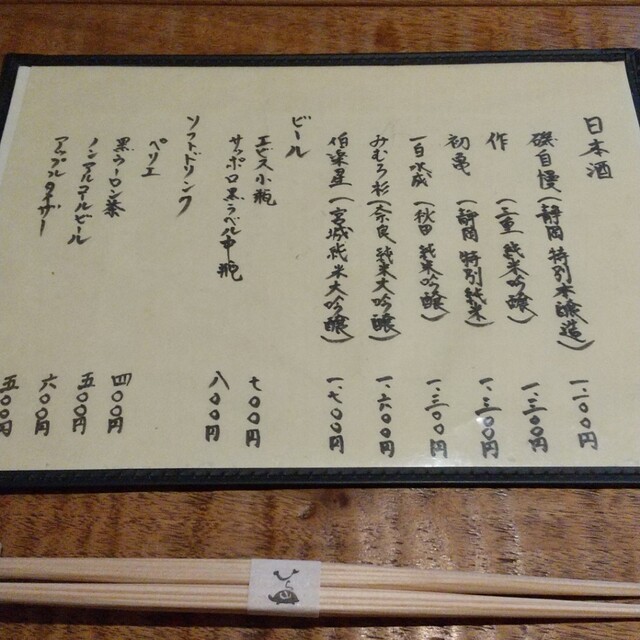 日本酒
磯自慢(静岡 特別本醸造) 一、一〇〇円
作 (三重 純米吟醸) 一、三〇〇円
初亀 (静岡 特別純米) 一、三〇〇円
一白水成 (秋田 純米吟醸) 一、三〇〇円
みむろ杉(奈良 純米大吟醸) 一、六〇〇円
伯楽星 (宮城 純米大吟醸) 一、七〇〇円
ビール
エビス小瓶 七〇〇円
サッポロ黒ラベル中瓶 八〇〇円
ソフトドリンク
ペリエ 四〇〇円
黒ウーロン茶 五〇〇円
ノンアルコールビール 六〇〇円
アップルタイザー 五〇〇円